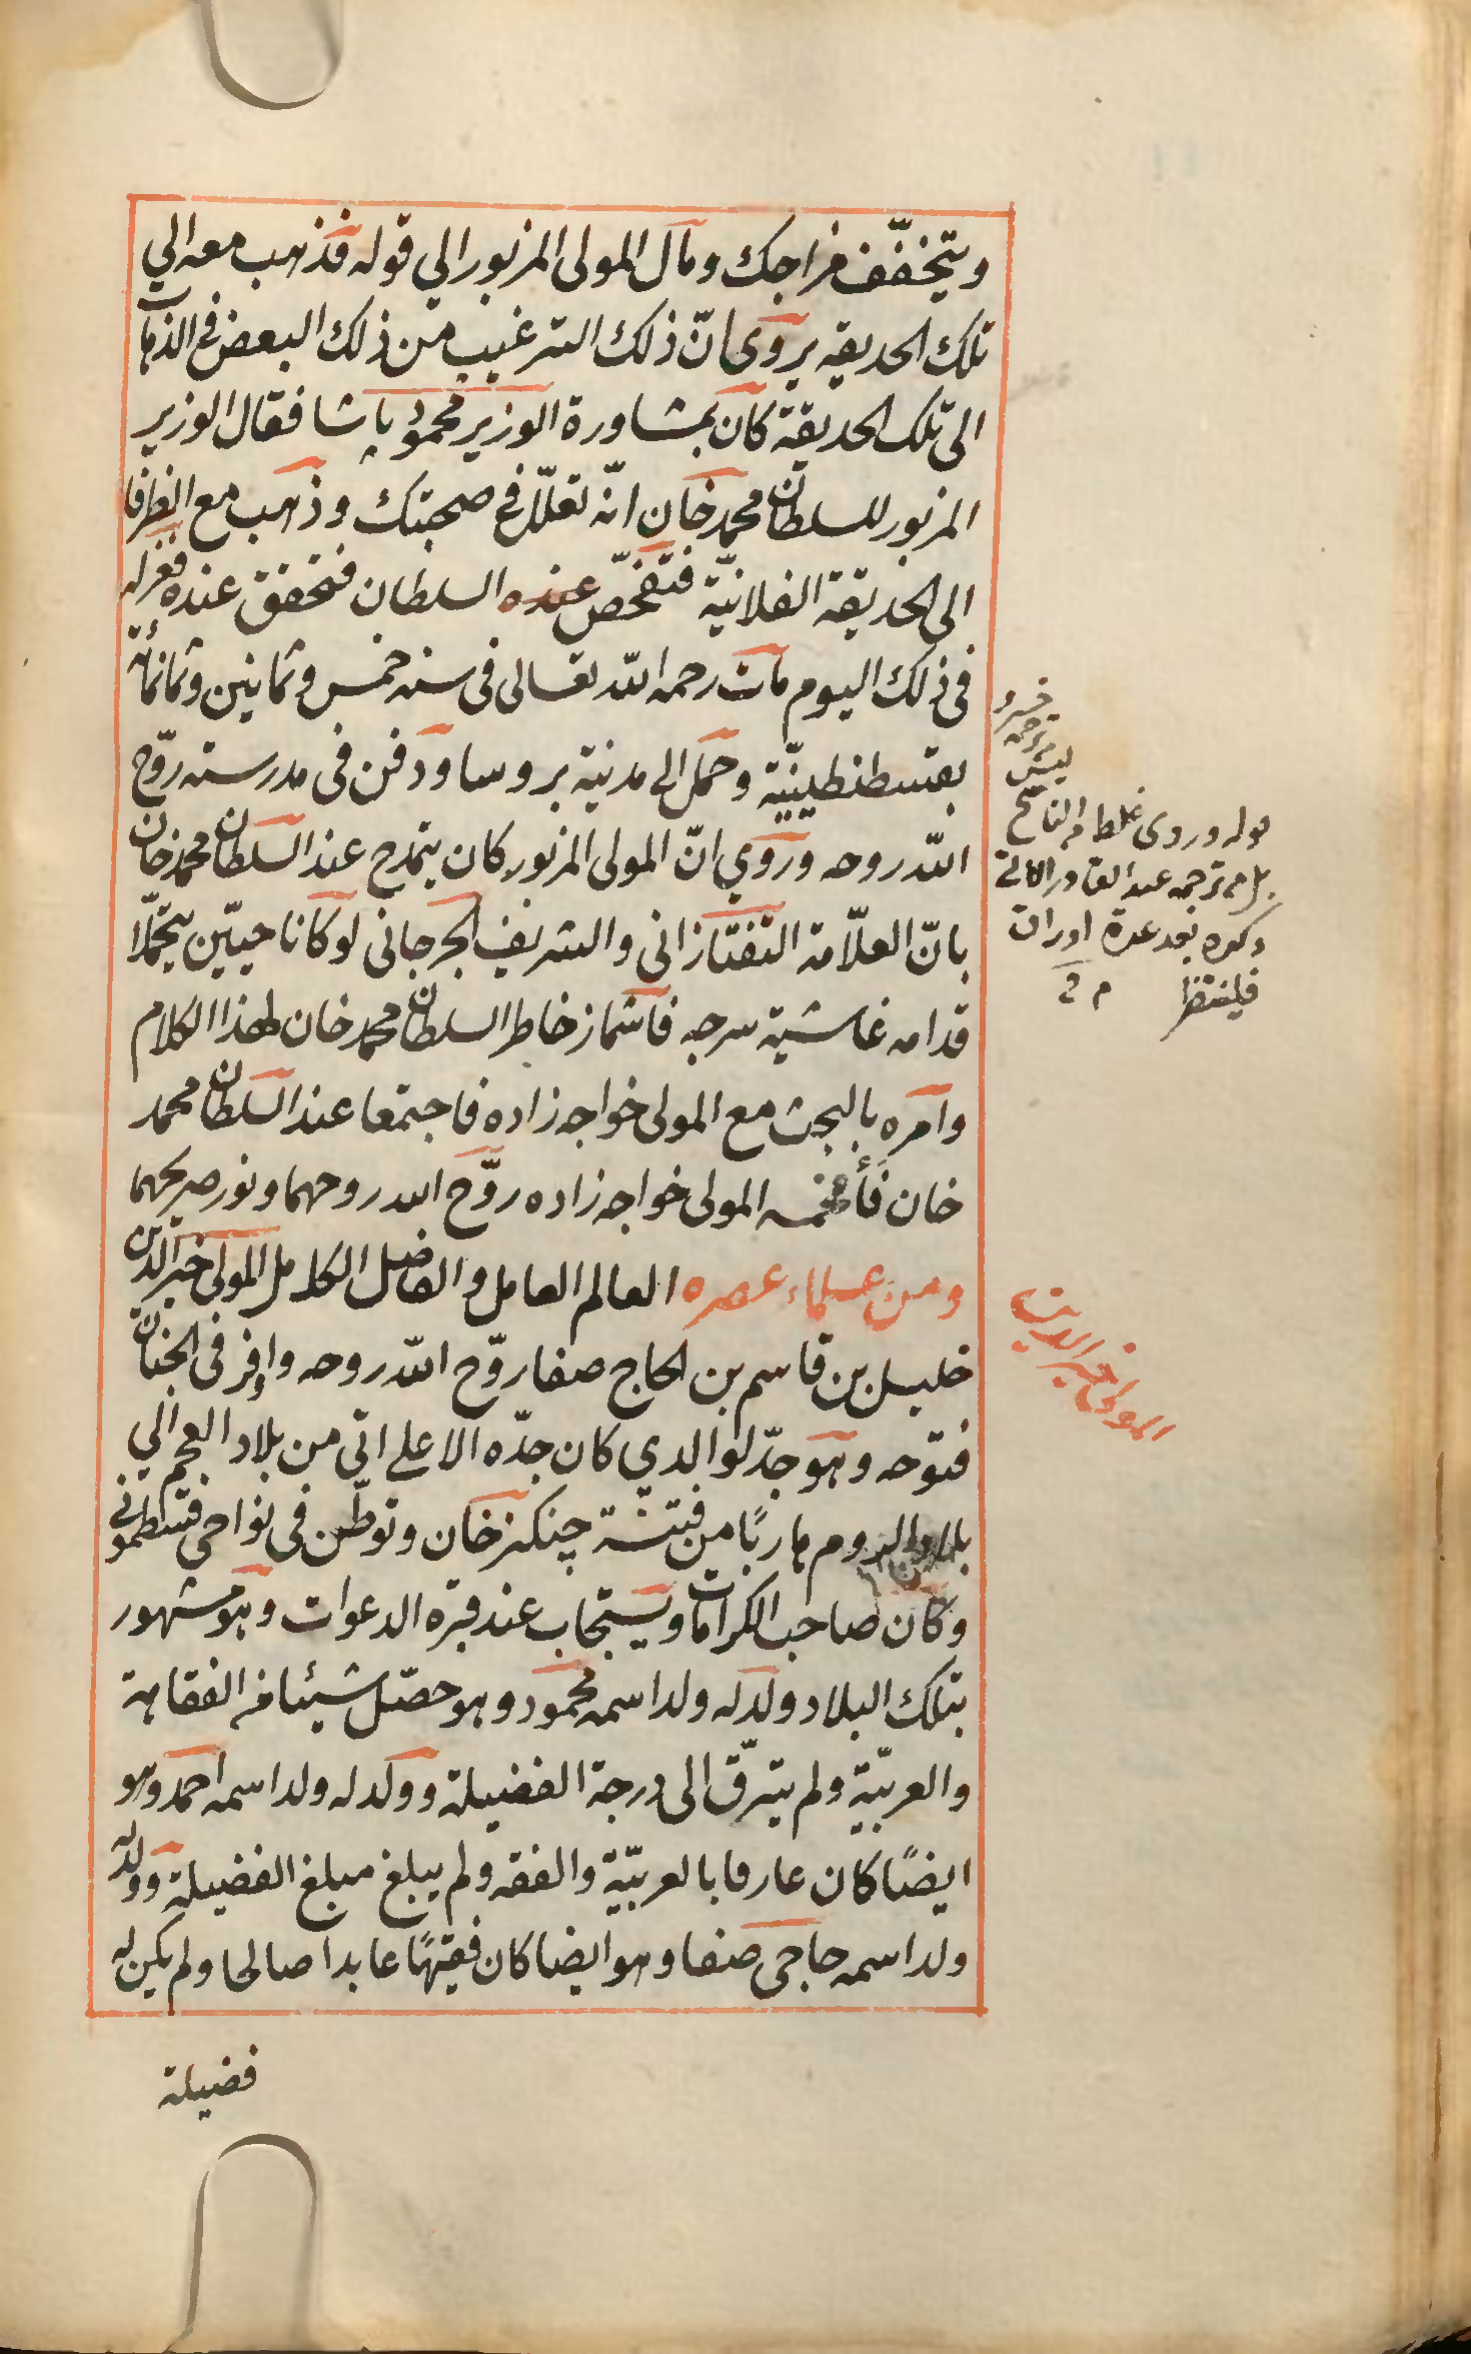 ويتخفّف مزاجك ومال المولى المزبور الي قوله فذهب معه الي
تلك الحديقه يروى انّ ذلك الترغيب من ذلك البعض في الذهاب
الى تلك الحديقة كان بمشاورة الوزير محمود پاشا فقال الوزير
المزبور للسلطان محمد خان انّه تعلّل في صحبتك وذهب مع الظرفا
الى الحديقة الفلانيّة فتفحّص عنده السلطان فتحقق عنده فعزله
فى ذلك اليوم مات رحمه اللّه تعالى فى سنه خمس وثمانين وثمانمأته
بقسطنطينيّة وحمل الى مدينة بروسا ودفن فى مدرسته روّح
اللّه روحه وروي انّ المولى المزبور كان يتمدح عند السلطان محمد خان
بانّ العلّامة التفتازانى والشريف الجرجانى لو كانا حيّين يتحمّلا
قدامه غاشية سرجه فاشماز خاطر السلطان محمد خان لهذا الكلام
وامره بالبحث مع المولى خواجه زاده فاجتمعا عند السلطان محمد
خان فأفحمه المولى خواجه زاده روّح الله روحهما ونور ضريحهما
ومن علماء عصره العالم العامل والفاضل الكامل المولى خير الدين
خليل بن قاسم بن الحاج صفا روّح اللّه روحه واوفر فى الجنان
فتوحه وهو جدّ لوالدي كان جدّه الاعلى اتى من بلاد العجم الي
بلاد الروم هاربًا من فتنة چنكز خان وتوطّن فى نواحى قسطمونى
وكان صاحب الكرامات ويستجاب عند قبره الدعوات وهو مشهور
بتلك البلاد ولد له ولد اسمه محمود وهو حصّل شيئا من الفقاهة
والعربيّة ولم يترقّ الى درجة الفضيلة وولد له ولد اسمه احمد وهو
ايضًا كان عارفا بالعربيّة والفقه ولم يبلغ مبلغ الفضيلة وولد له
ولد اسمه حاجى صفا وهو ايضا كان فقيهًا عابدا صالحا ولم يكن له
فضيلة
ليس ترجمة خسرو
قوله وروى غلط من الناسخ
بل من ترجمه عبد القادر الاتى
ذكره بعد عدة اوراق
فلينتظر م
المولى خير الدين